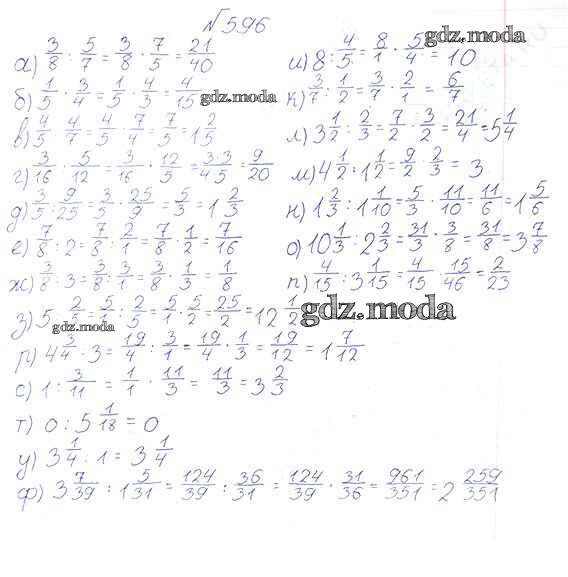 √596
а) 3/8 : 5/7 = 3/8 · 7/5 = 21/40
б) 1/5 : 3/4 = 1/5 · 4/3 = 4/15
в) 4/5 : 4/7 = 4/5 · 7/4 = 7/5 = 1 2/5
г) 3/16 : 5/12 = 3/16 · 12/5 = 3·3/4·5 = 9/20
д) 3/5 : 9/25 = 3/5 · 25/9 = 5/3 = 1 2/3
е) 7/8 : 2 = 7/8 : 2/1 = 7/8 · 1/2 = 7/16
ж) 3/8 : 3 = 3/8 : 3/1 = 3/8 · 1/3 = 1/8
з) 5 : 2/5 = 5/1 : 2/5 = 5/1 · 5/2 = 25/2 = 12 1/2
и) 8 : 4/5 = 8/1 · 5/4 = 10
к) 3/7 : 1/2 = 3/7 · 2/1 = 6/7
л) 3 1/2 : 2/3 = 7/2 · 3/2 = 21/4 = 5 1/4
м) 4 1/2 : 1 1/2 = 9/2 · 2/3 = 3
н) 1 2/3 : 1 1/10 = 5/3 · 11/10 = 11/6 = 1 5/6
о) 10 1/3 : 2 2/3 = 31/3 · 3/8 = 31/8 = 3 7/8
п) 4/15 : 3 1/15 = 4/15 · 15/46 = 2/23
р) 4 3/4 : 3 = 19/4 : 3/1 = 19/4 · 1/3 = 19/12 = 1 7/12
с) 1 : 3/11 = 1/1 · 11/3 = 11/3 = 3 2/3
т) 0 : 5 1/18 = 0
у) 3 1/4 : 1 = 3 1/4
ф) 3 7/39 : 1 5/31 = 124/39 : 36/31 = 124/39 · 31/36 = 961/351 = 2 259/351
gdz.moda
gdz.moda
gdz.moda
gdz.moda